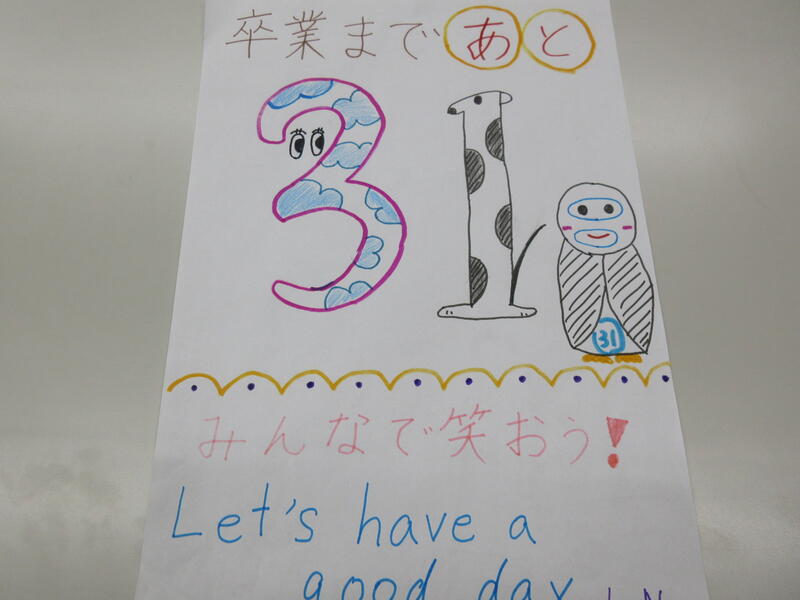 卒業まであと
31
31
みんなで笑おう!
Let's have a
good day